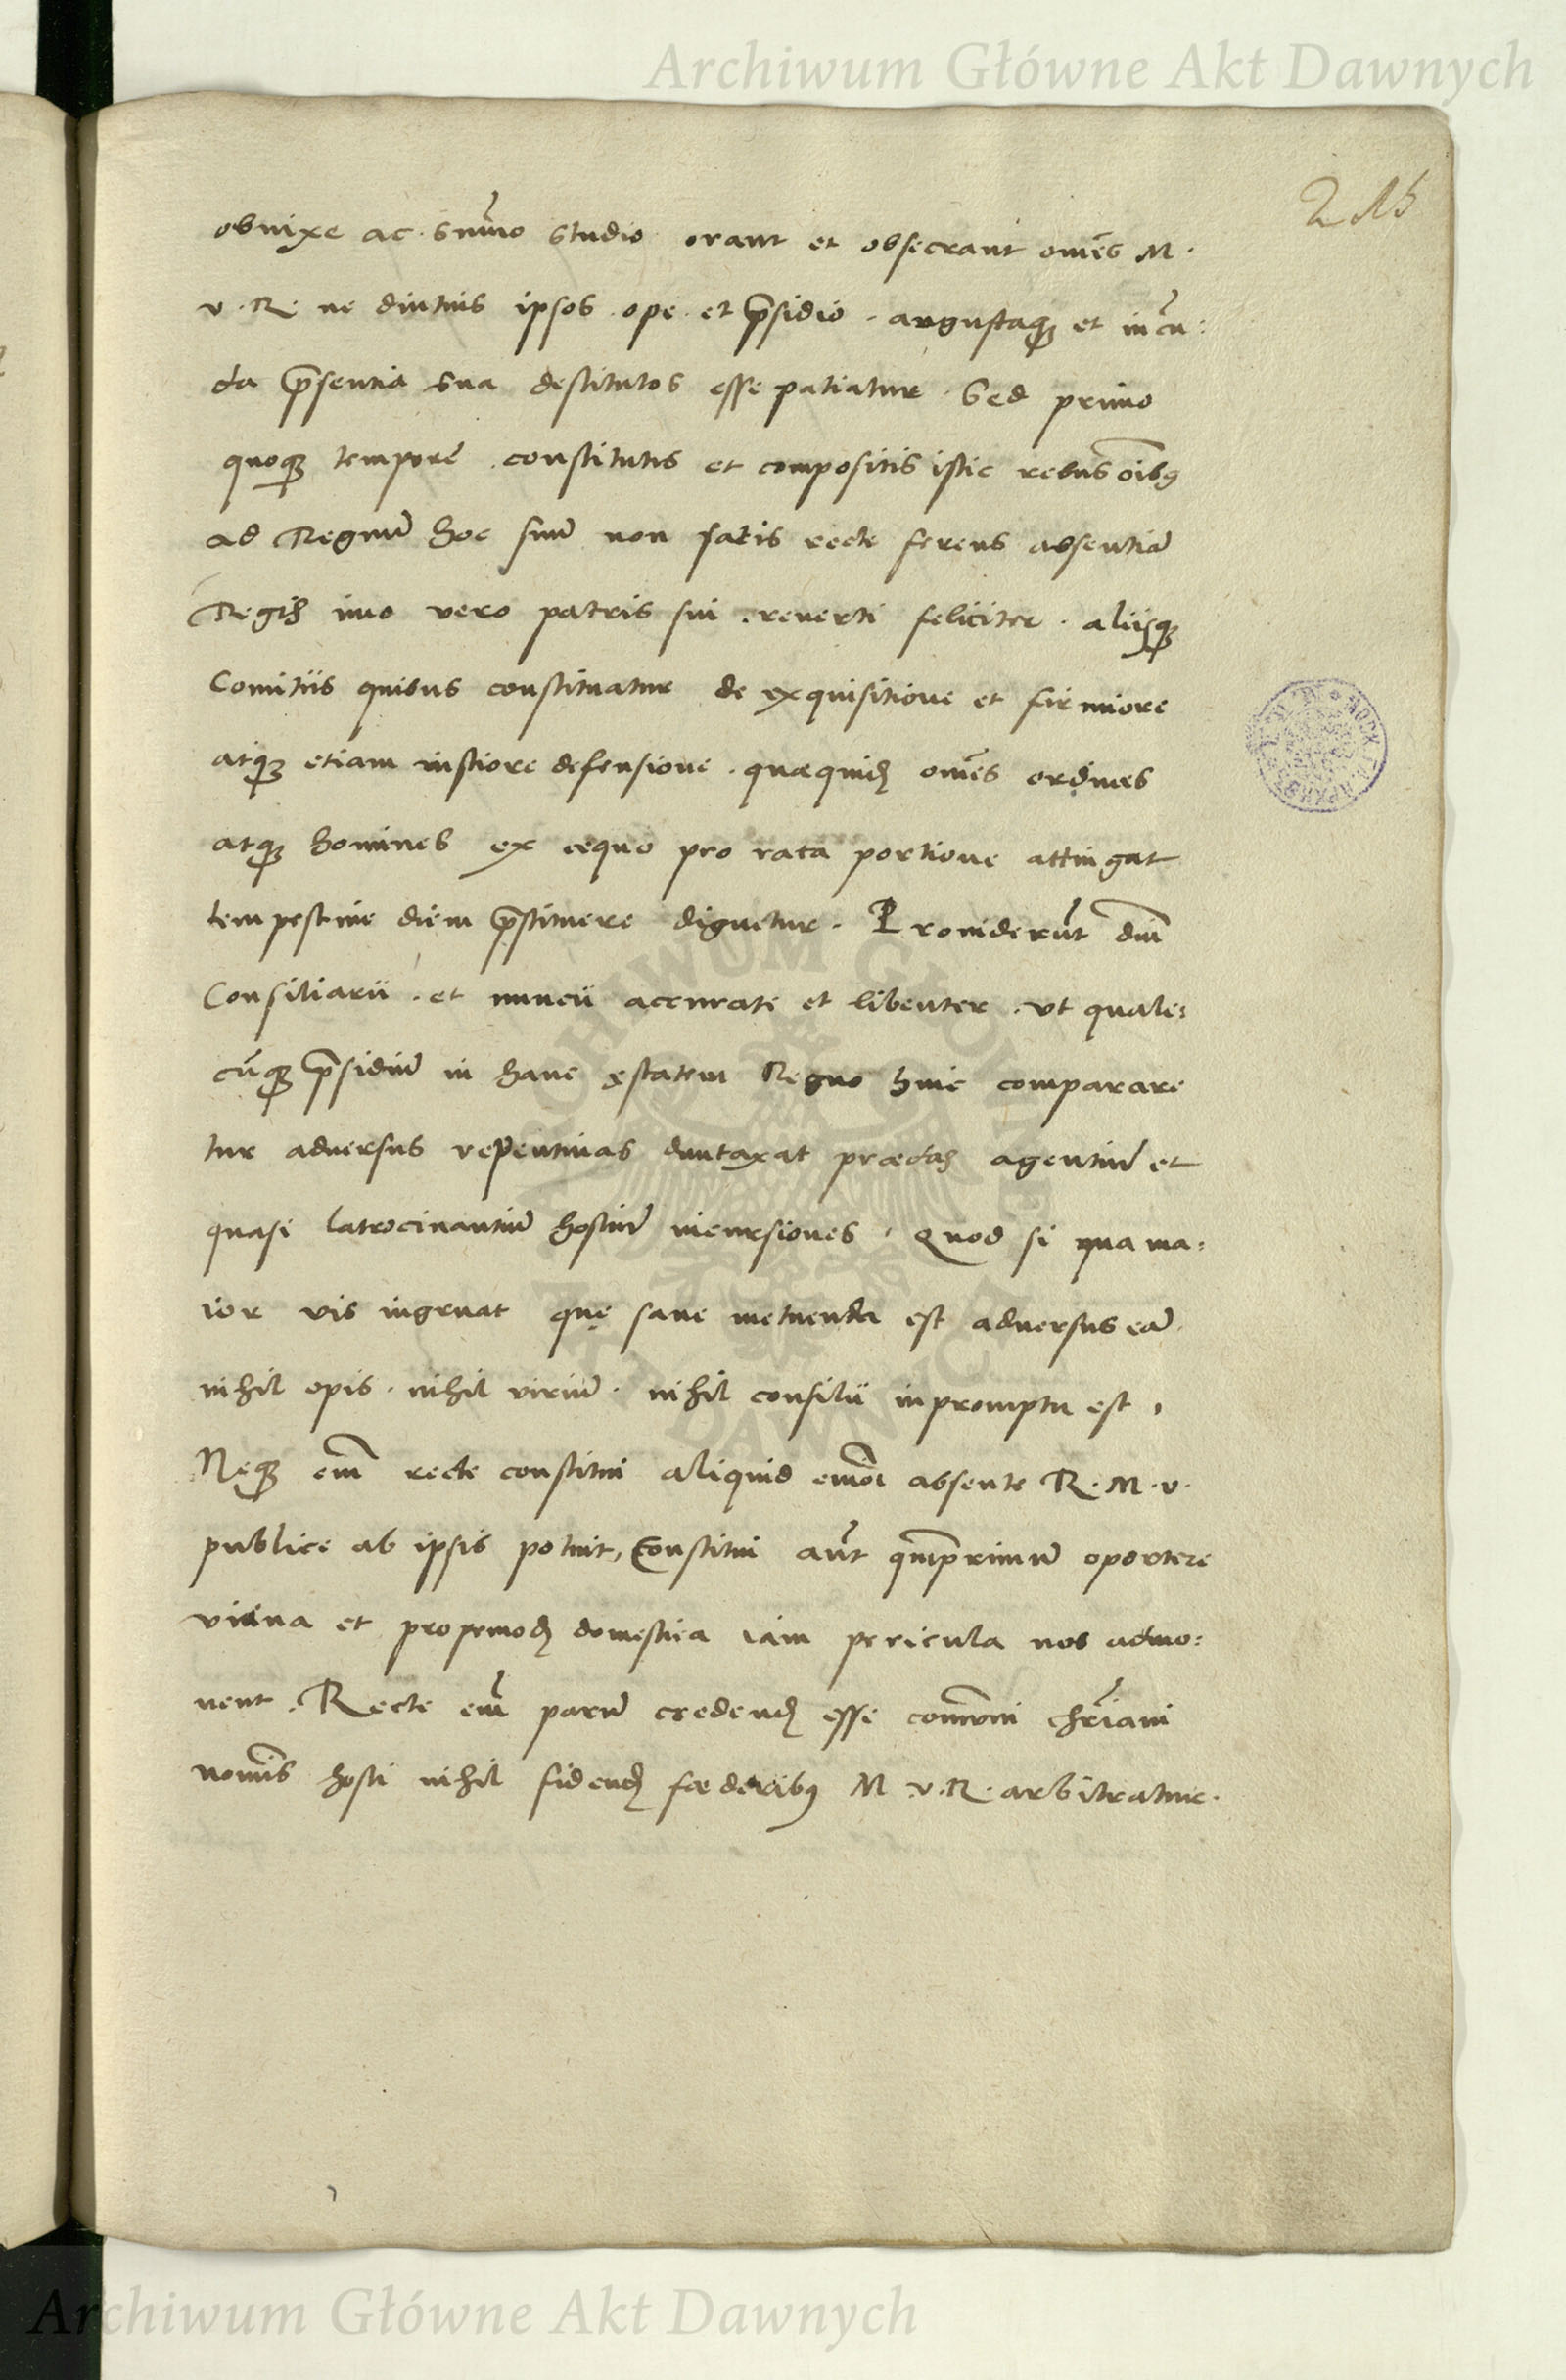 Archiwum Główne Akt Dawnych
215
obnixe ac. sum̃o studio orant et obsecrant om̃es M.
v. R. ne diutius ipsos. ope. et p̃sidio. augustaq₃ et iucũ:
da p̃sentia sua destitutos esse patiatur. Sed primo
quoq₃ tempore. constitutis et compositis istic rebus oĩbꝯ
ad Regnũ hoc suũ non satis recte ferens absentiã
Regis imo vero patris sui. reverti feliciter. aliisq₃
Comitiis quibus constituatur de exquisitiore et firmiore
atq₃ etiam iustiore defensione. quaequid₃ om̃es ordines
atq₃ homines ex aequo pro rata portione attingat
tempestiue diem p̃stituere dignetur. Prouiderũt dñi
Consiliarii. et nuncii accurate et libenter. vt quale:
cũq₃ p̃sidiũ in hanc ęstatem Regno huic comparare
tur aduersus repentinas duntaxat praedas agentiũ et
quasi latrocinantiũ hostiũ incursiones. Quod si qua ma:
ior vis ingruat quę sane metuenda est aduersus eã
nihil opis. nihil viriũ. nihil consilii in promptu est,
Neq₃ eñi recte constitui aliquid em̃oi absente R. M. v.
publice ab ipsis potuit, Constitui aũt q̃mprimũ oportere
vicina et propemod₃ domestica iam pericula nos admo:
nent. Recte eñi parũ credend₃ esse com̃uni chr̃iani
nomĩs hosti nihil fidend₃ foederibꝯ M. v. R. arbitratur.
ARCHIWUM GŁÓWNE AKT DAWNYCH
Archiwum Główne Akt Dawnych